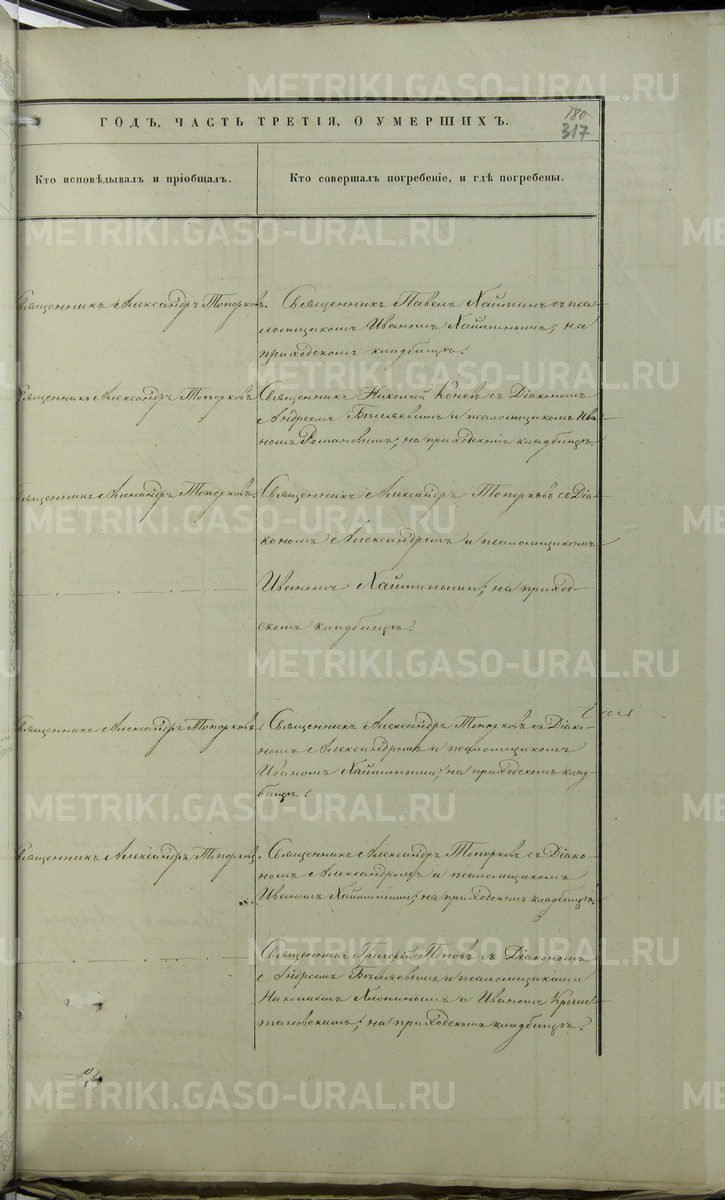 180
317
ГОДЪ, ЧАСТЬ ТРЕТІЯ, О УМЕРШИХЪ.
Кто исповѣдывалъ и пріобщалъ.
Кто совершалъ погребеніе, и гдѣ погребены.
Священникъ Александръ Топорковъ.
Священникъ Павелъ Хайминъ съ пса-
ломщикомъ Иваномъ Хайминымъ; на
приходскомъ кладбищѣ.
Священникъ Александръ Топорковъ
Священникъ Николай Коневъ съ Діакономъ
Андреемъ Бѣляевымъ и псаломщикомъ Ива
номъ Романовымъ; на приходскомъ кладбищѣ.
Священникъ Александръ Топорковъ.
Священникъ Александръ Топорковъ съ Діа-
кономъ Александромъ и псаломщикомъ
Иваномъ Хаймиными; на приход-
скомъ кладбищѣ.
Священникъ Александръ Топорковъ.
Священникъ Александръ Топорковъ съ Діако-
номъ Александромъ и псаломщикомъ
Иваномъ Хаймиными; на приходскомъ клад-
бищѣ.
Священникъ Александръ Топорковъ.
Священникъ Александръ Топорковъ съ Діако-
номъ Александромъ и псаломщикомъ
Иваномъ Хаймиными; на приходскомъ кладбищѣ.
Священникъ Григорій Поповъ съ Діакономъ
Андреемъ Бѣляевымъ и псаломщиками
Николаемъ и Иваномъ
на приходскомъ кладбищѣ.
METRIKI.GASO-URAL.RU